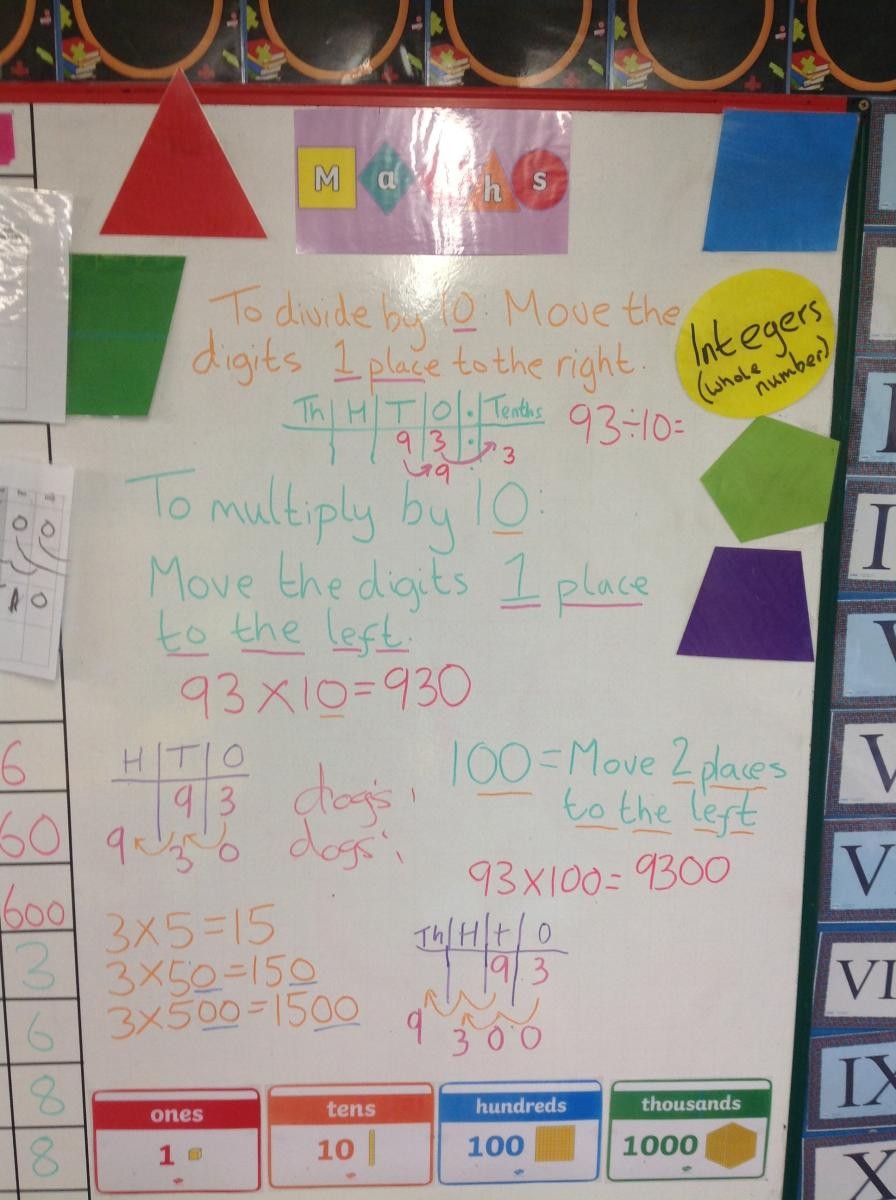 Maths
To divide by 10: Move the
digits 1 place to the right.
Integers
(whole
number)
Th H T O . Tenths
93÷10=
9 3 .
9 . 3
To multiply by 10:
Move the digits 1 place
to the left.
93×10=930
H T O
9 3
9 3 0
dog's
dogs'
100=Move 2 places
to the left
93×100=9300
Th H t O
9 3
9 3 0 0
3×5=15
3×50=150
3×500=1500
6
60
600
3
6
8
8
O O
A O
I
I
V
V
V
VI
IX
X
ones
1
tens
10
hundreds
100
thousands
1000